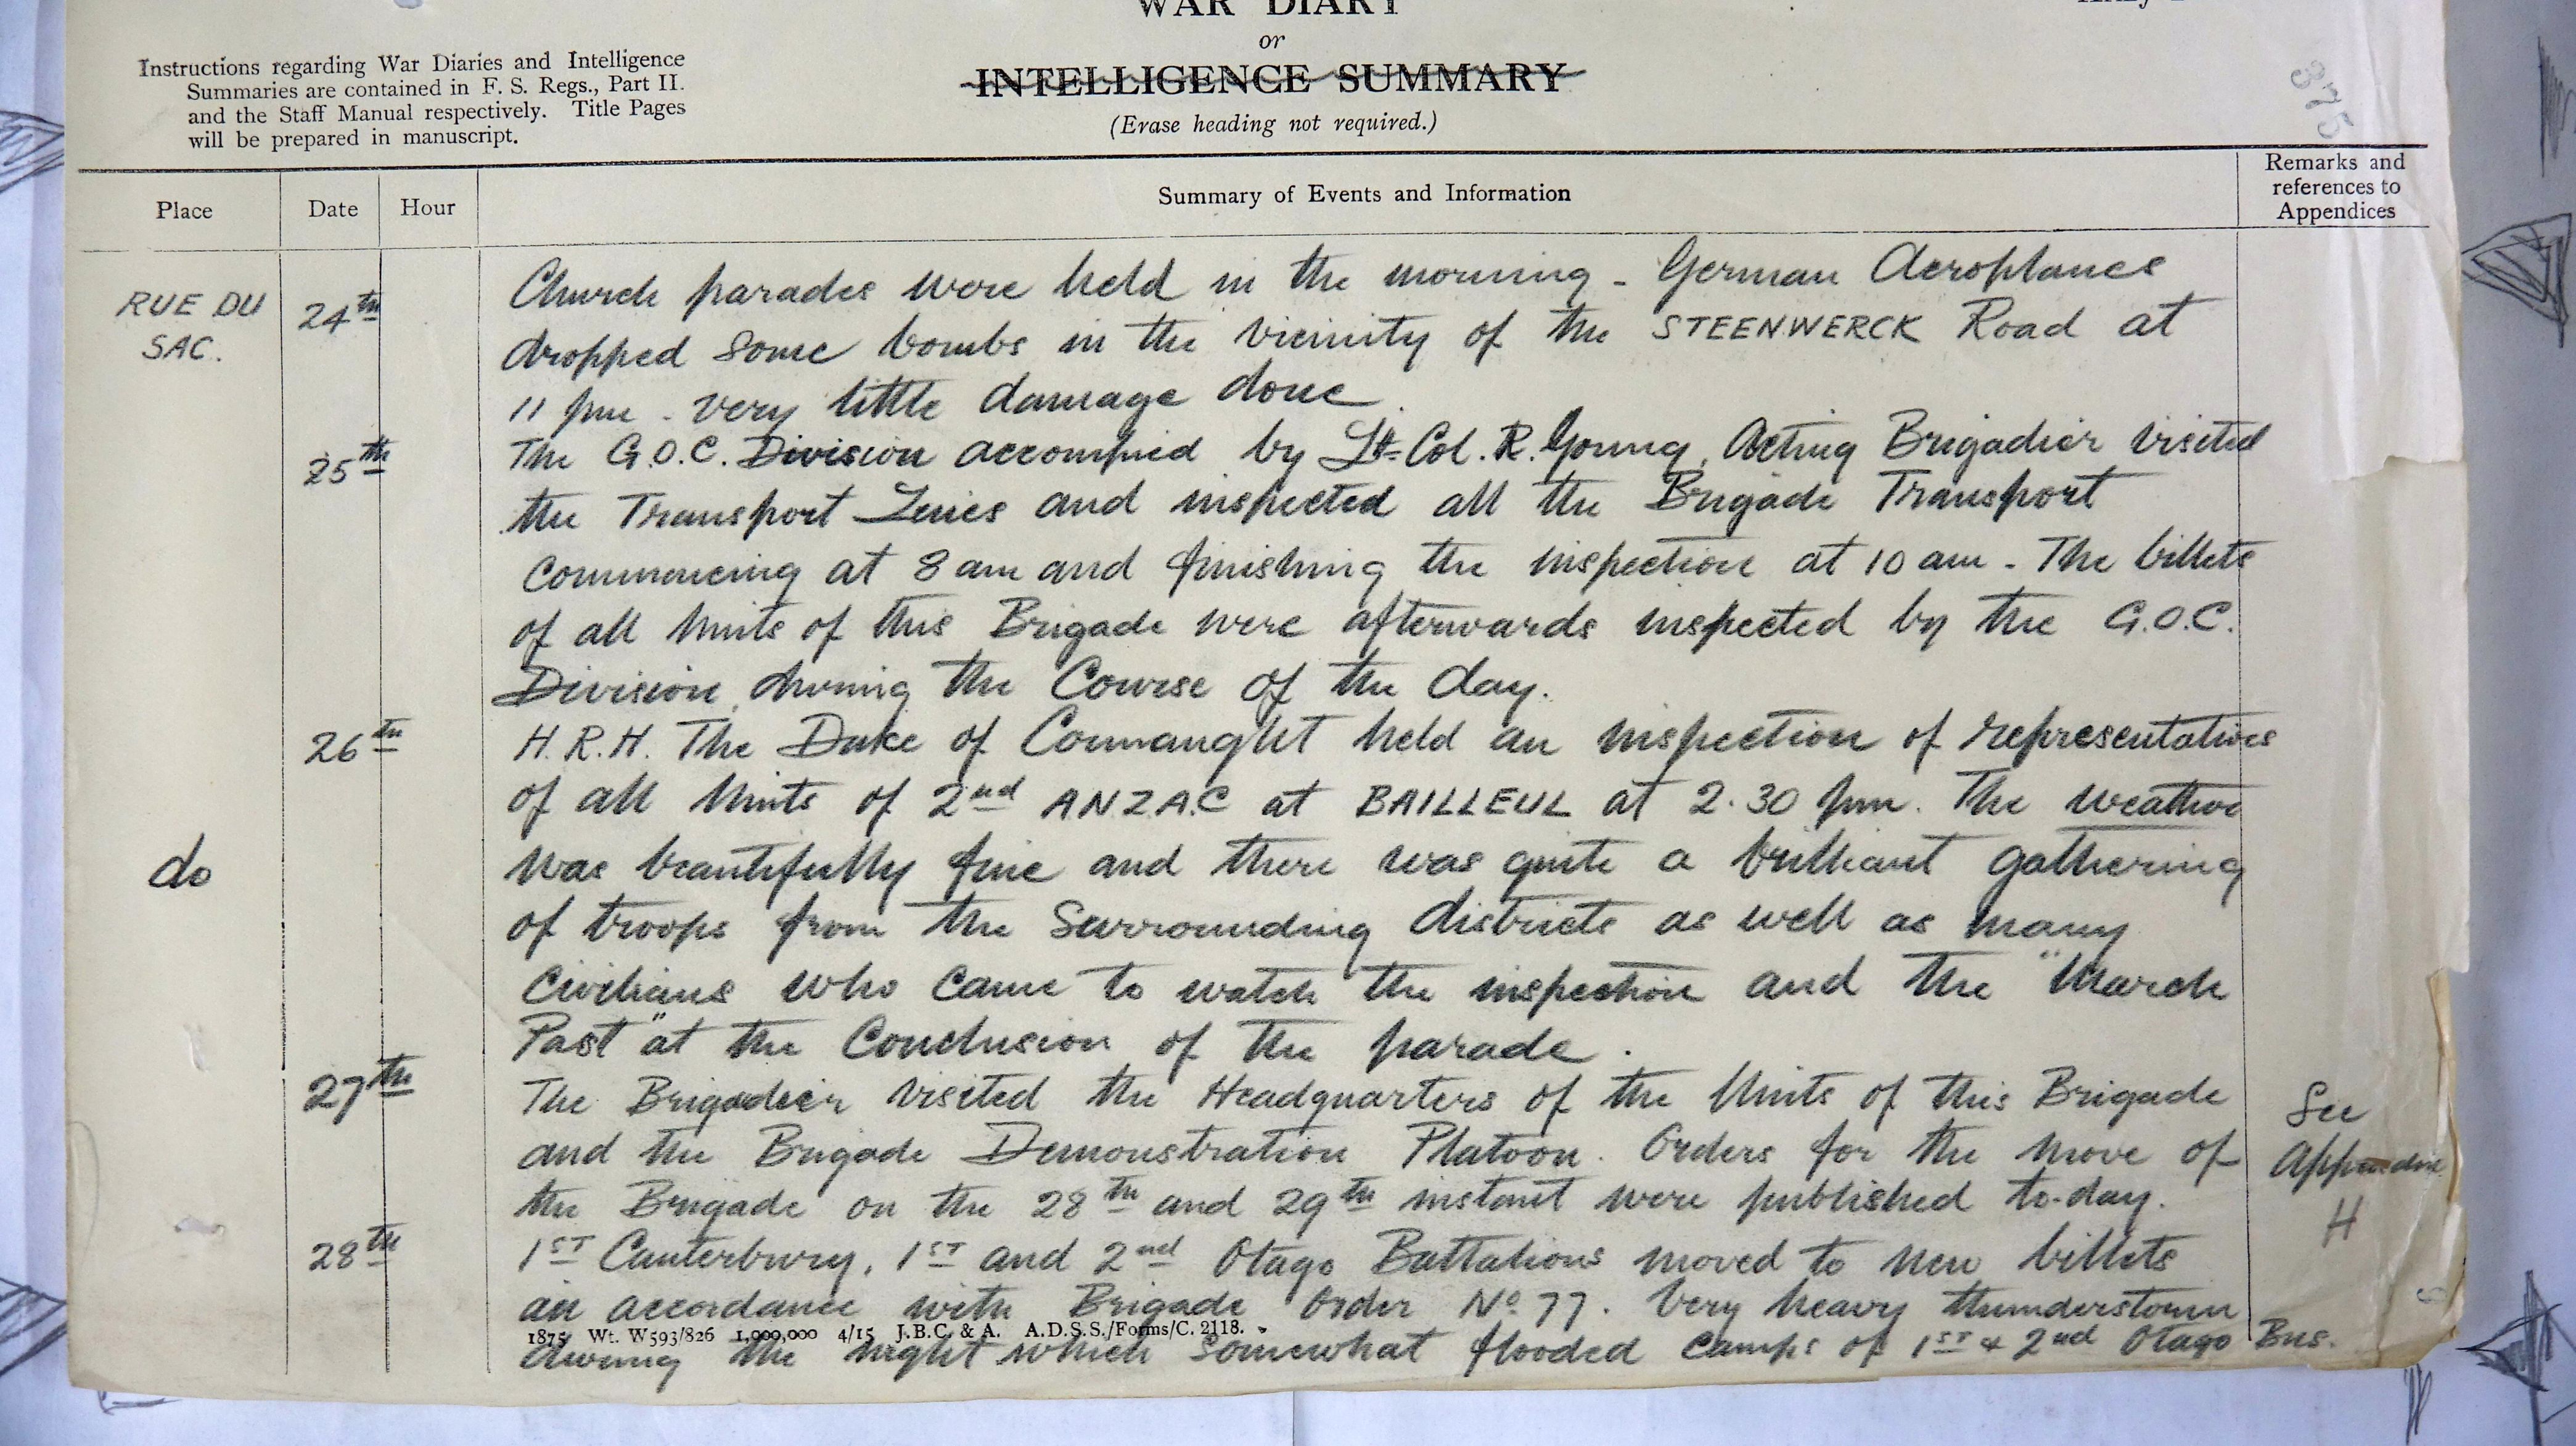 WAR DIARY
or
INTELLIGENCE SUMMARY
(Erase heading not required.)
Instructions regarding War Diaries and Intelligence
Summaries are contained in F. S. Regs., Part II.
and the Staff Manual respectively. Title Pages
will be prepared in manuscript.
375
Place Date Hour Summary of Events and Information Remarks and references to Appendices
RUE DU SAC. 24th Church parades were held in the morning - German Aeroplanes
dropped some bombs in the vicinity of the STEENWERCK Road at
11 pm - very little damage done.
25th The G.O.C. Division accompied by Lt-Col. R. Young, Acting Brigadier visited
the Transport Lines and inspected all the Brigade Transport
commencing at 8 am and finishing the inspection at 10 am - The billets
of all Units of this Brigade were afterwards inspected by the G.O.C.
Division, during the Course of the day.
26th H.R.H. The Duke of Connaught held an inspection of representatives
of all Units of 2nd A.N.Z.A.C at BAILLEUL at 2.30 pm. The weather
do was beautifully fine and there was quite a brilliant gathering
of troops from the Surrounding districts as well as many
Civilians who came to watch the inspection and the "March
Past" at the Conclusion of the parade.
27th The Brigadier visited the Headquarters of the Units of this Brigade See
and the Brigade Demonstration Platoon. Orders for the move of Appendix
the Brigade on the 28th and 29th instant were published to-day. H
28th 1ST Canterbury, 1ST and 2nd Otago Battalions moved to new billets
in accordance with Brigade Order No 77. Very heavy thunderstorm
1875 Wt. W593/826 1,900,000 4/15 J.B.C. & A. A.D.S.S./Forms/C. 2118.
during the night which somewhat flooded camps of 1ST & 2nd Otago Bns.